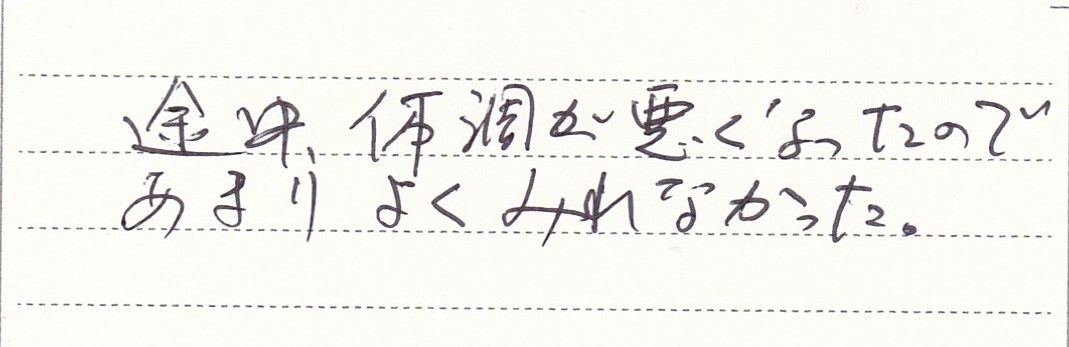 途中、体調が悪くなったので
あまりよくみれなかった。